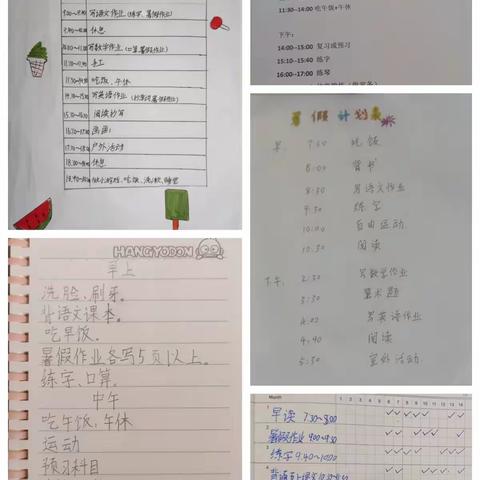 写语文作业(练字、暑假作业)
休息
写数学作业(口算、暑假作业)
手工
吃饭、午休
写英语作业
阅读抄写
画画
户外活动
休息
11:30--14:00 吃午饭+午休
下午:
14:00--15:00 复习或预习
15:10--15:40 练字
16:00--17:00 练琴
暑假计划表
早 7:50 吃饭
8:00 背书
8:30 写语文作业
9:30 练字
10:00 自由运动
10:30 阅读
下午 2:30 写数学作业
3:30 算术题
4:00 写英语作业
4:40 阅读
5:30 室外活动
HANGYODON
早上
洗脸、刷牙。
背语文课本。
吃早饭。
暑假作业各写5页以上。
练字、口算。
中午
吃午饭,午休
运动
预习科目
Month
1 2 3 4 5 6 7 8 9 10 11 12 13 14
早读 7:30~8:00
暑假作业 9:00~9:30
练字 9:40~10:00